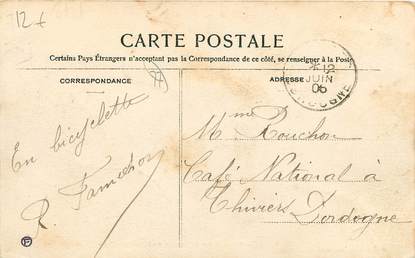 12 €
CARTE POSTALE
Certains Pays Étrangers n'acceptant pas la Correspondance de ce côté, se renseigner à la Poste
CORRESPONDANCE
ADRESSE
12
JUIN
06
DORDOGNE
En bicyclette
R.
Mme Rouchon
Café National à
Thiviers Dordogne